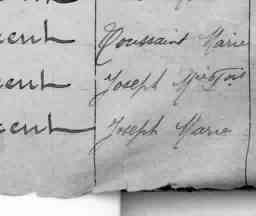 cent Toussaint Marie
cent Joseph
cent Joseph Marie